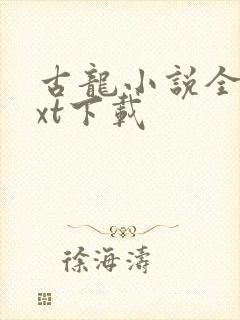 古龍小説全
xt下載
徐海濤